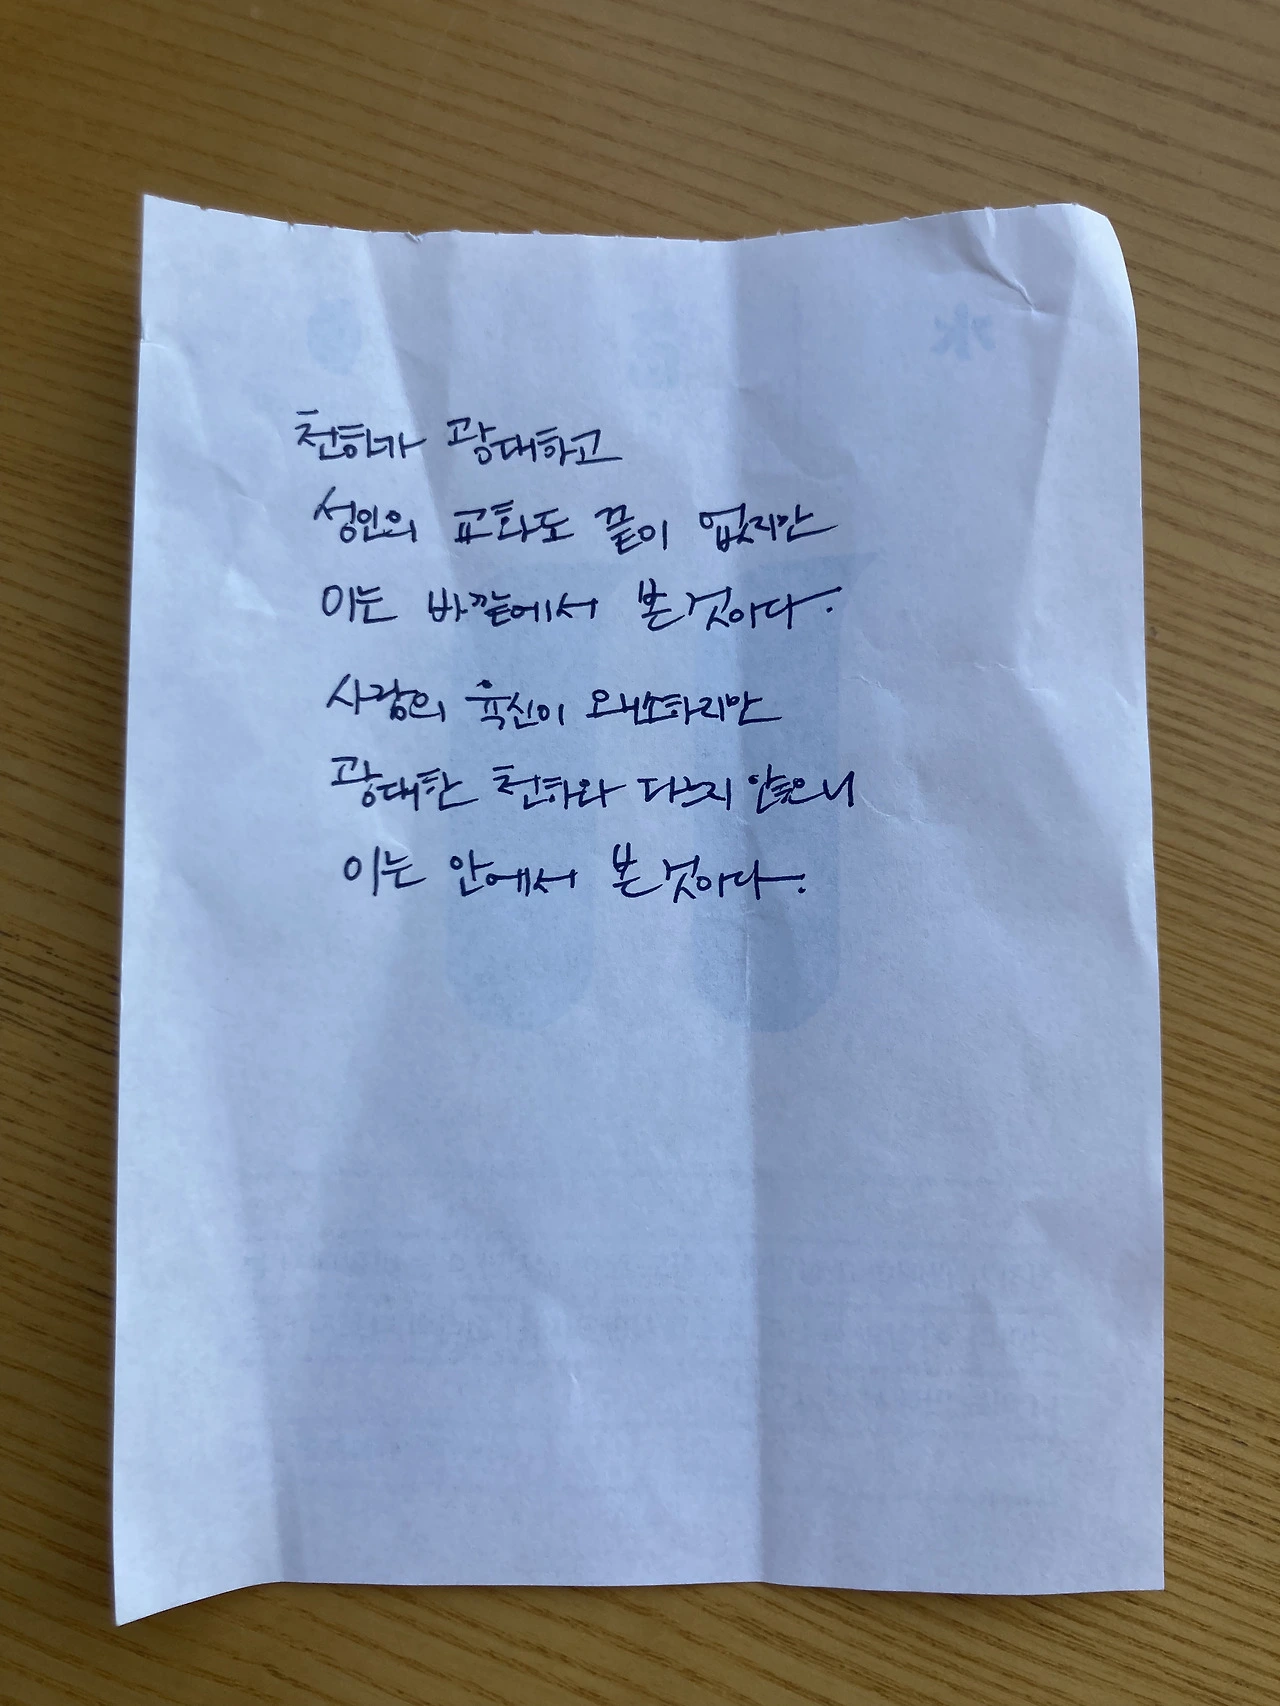 천하가 광대하고
성인의 교화도 끝이 없지만
이는 바깥에서 본 것이다.
사람의 육신이 왜소하지만
광대한 천하와 다르지 않으니
이는 안에서 본 것이다.
水